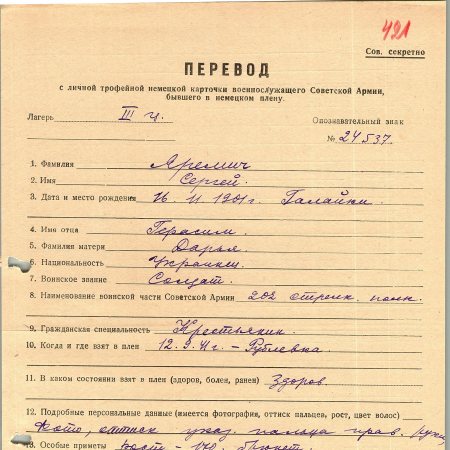 421
Сов. секретно
ПЕРЕВОД
с личной трофейной немецкой карточки военнослужащего Советской Армии,
бывшего в немецком плену.
Лагерь III ц. Опознавательный знак
№ 24537.
1. Фамилия Яремич
2. Имя Сергей.
3. Дата и место рождения 16 11 1901г. Галайки.
4. Имя отца Герасим.
5. Фамилия матери Дарья
6. Национальность Украинец.
7. Воинское звание Солдат.
8. Наименование воинской части Советской Армии 202 стрелк. полк.
9. Гражданская специальность Крестьянин.
10. Когда и где взят в плен 12.9.41г. - Рублевка.
11. В каком состоянии взят в плен (здоров, болен, ранен) Здоров.
12. Подробные персональные данные (имеется фотография, оттиск пальцев, рост, цвет волос)
Фото, оттиск указ. пальца прав. руки,
13. Особые приметы рост - 170, брюнет.